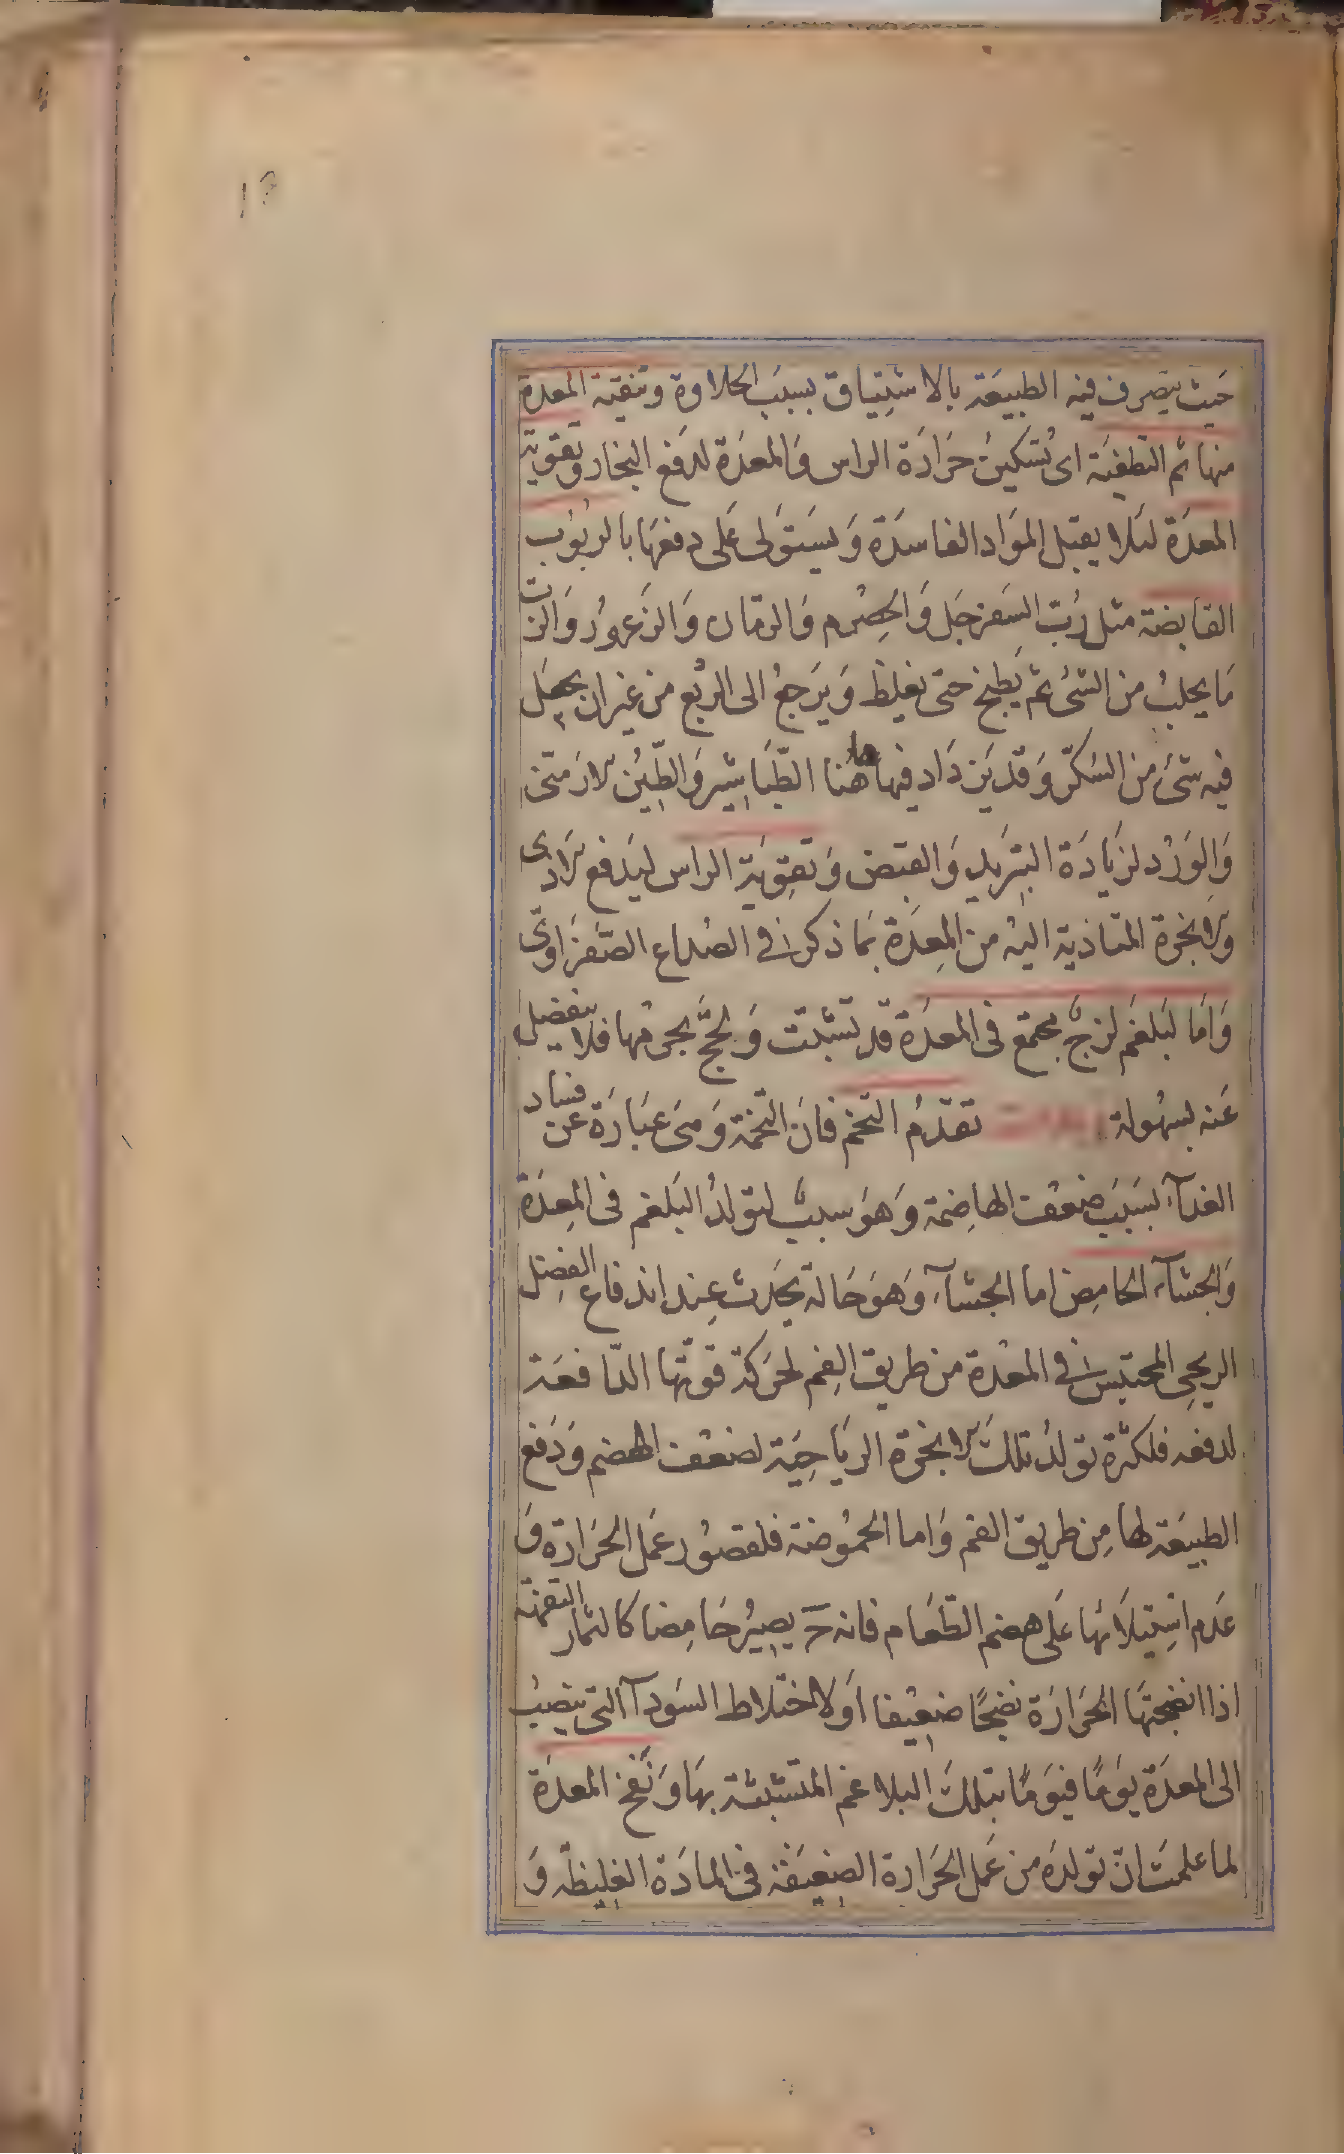 حَيث يتصرف فيه الطبيعَة بالاشتِياق بسبَب الحَلاوة وتنقية المعدة
منها ثم التطفية اى تسكين حَرارَة الراس وَالمعدَة لدفع البخار وتقوية
المعدَة لئلا يقبل الموَاد الفاسدَة وَيستَولى عَلى دفعهَا بالربُوب
القابضة مثل رُبّ السَفرجَل وَالحِصْرم وَالرمّان وَالزَعرُور وَالربّ
مَا يحلبُ من الشئ ثم يَطبخ حتى يغلِظ وَيرَجعُ الى الربْع من غير ان يجعَل
فيه شئ من السُكّر وَقد يَزداد فيها هٰهُنا الطّبَاشير وَالطِّين الارمَنى
وَالوَرْد لزيَادَة التبَريد وَالقبض وَتقوِيَة الراس ليَدفع الاذى
والابخرة المتاذية اليْه من المِعدَة بمَا ذكر فى الصُداع الصَّفرَاوىّ
وَامَا لبَلغَم لزجٌ مجتمع فى المعدَة قد تشبّثت وَلحجَّ بجرْمها فلا ينفصل
عَنه بسهُولة تقدّمُ التخم فانَ التخمَة وَهى عبَارَة عن فساد
الغدآء بسَبَب ضعْف الهاضِمة وَهوَ سببٌ لتولدُ البَلغم فى المِعدَة
وَالجشآء الحَامِض اما الجشآء وَهوَ حَالة يحَدث عِند اندفاع الفضل
الريحى المحتبس فى المعْدة من طريق الفِم لحرَكة قوّتها الدّافعَة
لدفعه فلكثرة تولدُ تلكَ الابخرة الريَاحيَة لضعْف الهضم وَدَفع
الطبيعَة لها مِن طريق الفم وَاما الحُموُضة فلقصوُر عمَل الحَرارة وَ
عَدم استيلَائهَا عَلى هضم الطّعَام فانه ح يصيرُ حَامِضا كالثمار التفهة
اذا انضجتهَا الحَرارَة نضجًا ضعِيفا اوَ لاختلاط السَودآ التى ينصبُ
الى المعدَة يوَمًا فيوَمًا بتلكَ البلاغم المتشبثة بهَا وَنَفخ المعدَة
لما علمتَ انّ تولدهَ من عَمل الحَرارة الضعيفة فى المادَة الغليظة وَ